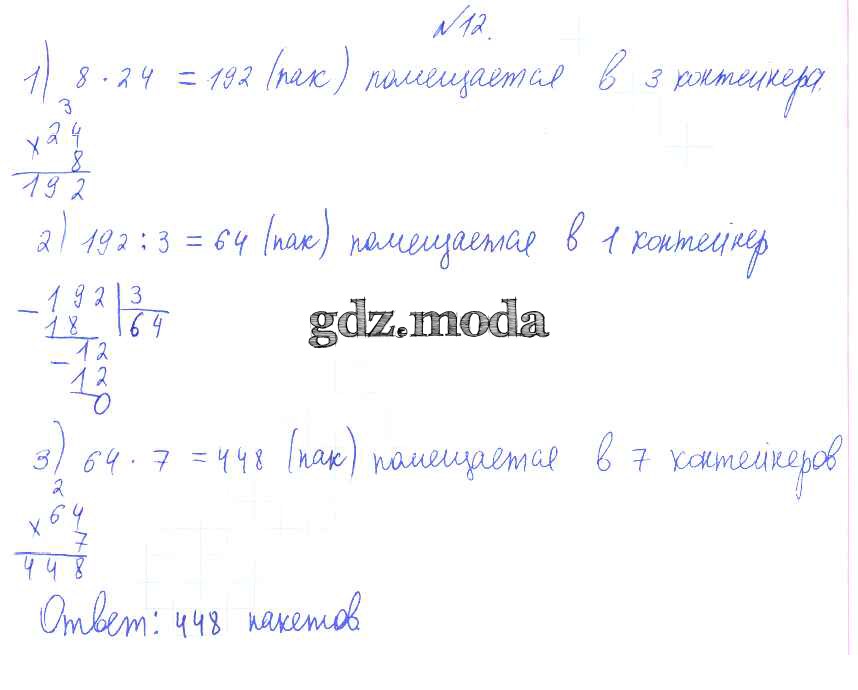 №12.
1) 8 · 24 = 192 (пак) помещается в 3 контейнера.
3
× 24
8
192
2) 192 : 3 = 64 (пак) помещается в 1 контейнер
- 192 | 3
18 | 64
- 12
12
0
gdz.moda
3) 64 · 7 = 448 (пак) помещается в 7 контейнеров
2
× 64
7
448
Ответ: 448 пакетов.